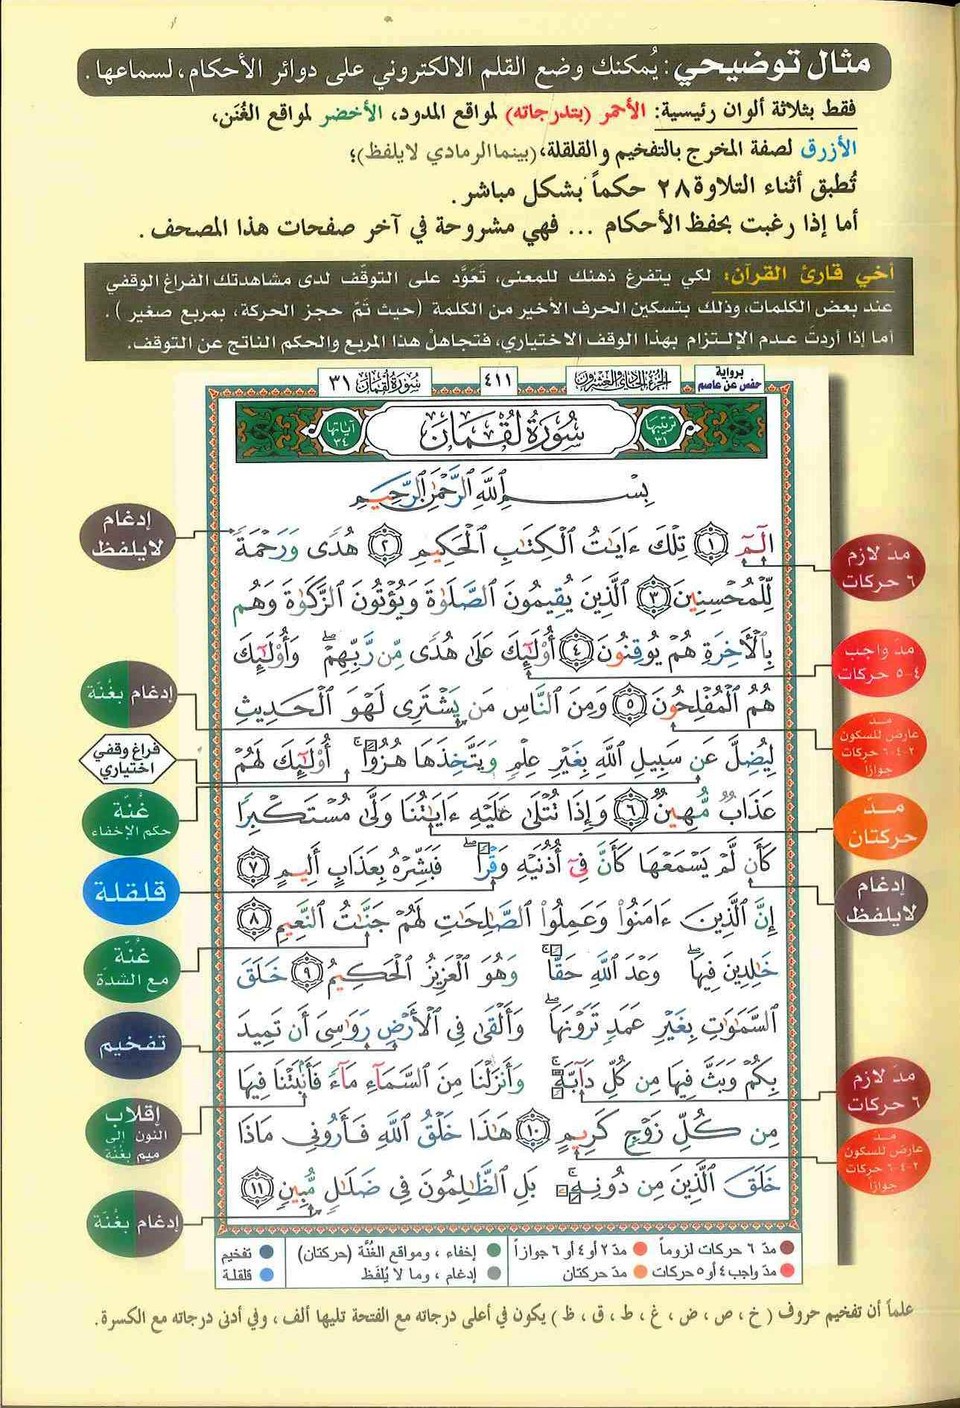 مثال توضيحي: يُمكنك وضع القلم الالكتروني على دوائر الأحكام، لسماعها.
فقط بثلاثة ألوان رئيسية: الأحمر (بتدرجاته) لمواقع المدود، الأخضر لمواقع الغُنَن،
الأزرق لصفة المخرج بالتفخيم والقلقلة، (بينما الرمادي لا يلفظ)؛
تُطبق أثناء التلاوة ٢٨ حكماً بشكل مباشر.
أما إذا رغبت بحفظ الأحكام ... فهي مشروحة في آخر صفحات هذا المصحف.
أخي قارئ القرآن: لكي يتفرغ ذهنك للمعنى، تَعَوَّد على التوقّف لدى مشاهدتك الفراغ الوقفي
عند بعض الكلمات، وذلك بتسكين الحرف الأخير من الكلمة (حيث تمّ حجز الحركة، بمربع صغير).
أما إذا أردتَ عدم الإلـتزام بهذا الوقف الاختياري، فتجاهلْ هذا المربع والحكم الناتج عن التوقف.
برواية
حفص عن عاصم
الجزء الحادي والعشرون
٤١١
سُورَة لُقْمَان ٣١
ترتيبها
٣١
سُورَةُ لُقْمَان
آياتها
٣٤
بِسْمِ اللَّهِ الرَّحْمَٰنِ الرَّحِيمِ
الٓمٓ ١ تِلْكَ ءَايَٰتُ الْكِتَٰبِ الْحَكِيمِ ٢ هُدًى وَرَحْمَةً
لِّلْمُحْسِنِينَ ٣ الَّذِينَ يُقِيمُونَ الصَّلَوٰةَ وَيُؤْتُونَ الزَّكَوٰةَ وَهُم
بِالْأَخِرَةِ هُمْ يُوقِنُونَ ٤ أُوْلَٰٓئِكَ عَلَىٰ هُدًى مِّن رَّبِّهِمْ ۖ وَأُوْلَٰٓئِكَ
هُمُ الْمُفْلِحُونَ ٥ وَمِنَ النَّاسِ مَن يَشْتَرِى لَهْوَ الْحَدِيثِ
لِيُضِلَّ عَن سَبِيلِ اللَّهِ بِغَيْرِ عِلْمٍ وَيَتَّخِذَهَا هُزُوًا ۚ أُوْلَٰٓئِكَ لَهُمْ
عَذَابٌ مُّهِينٌ ٦ وَإِذَا تُتْلَىٰ عَلَيْهِ ءَايَٰتُنَا وَلَّىٰ مُسْتَكْبِرًا
كَأَن لَّمْ يَسْمَعْهَا كَأَنَّ فِىٓ أُذُنَيْهِ وَقْرًا ۖ فَبَشِّرْهُ بِعَذَابٍ أَلِيمٍ ٧
إِنَّ الَّذِينَ ءَامَنُوا وَعَمِلُوا الصَّٰلِحَٰتِ لَهُمْ جَنَّٰتُ النَّعِيمِ ٨
خَٰلِدِينَ فِيهَا ۖ وَعْدَ اللَّهِ حَقًّا ۚ وَهُوَ الْعَزِيزُ الْحَكِيمُ ٩ خَلَقَ
السَّمَٰوَٰتِ بِغَيْرِ عَمَدٍ تَرَوْنَهَا ۖ وَأَلْقَىٰ فِى الْأَرْضِ رَوَٰسِىَ أَن تَمِيدَ
بِكُمْ وَبَثَّ فِيهَا مِن كُلِّ دَآبَّةٍ ۚ وَأَنزَلْنَا مِنَ السَّمَآءِ مَآءً فَأَنۢبَتْنَا فِيهَا
مِن كُلِّ زَوْجٍ كَرِيمٍ ١٠ هَٰذَا خَلْقُ اللَّهِ فَأَرُونِى مَاذَا
خَلَقَ الَّذِينَ مِن دُونِهِ ۚ بَلِ الظَّٰلِمُونَ فِى ضَلَٰلٍ مُّبِينٍ ١١
مدّ لازم
٦ حركات
مدّ واجب
٤-٥ حركات
مدّ
عارض للسكون
٢-٤-٦ حركات
جوازاً
مدّ
حركتان
إدغام
لايلفظ
مدّ لازم
٦ حركات
مدّ
عارض للسكون
٢-٤-٦ حركات
جوازاً
إدغام
لايلفظ
إدغام بغُنّة
فراغ وقفي
اختياري
غُنّة
حكم الإخفاء
قلقلة
غُنّة
مع الشدّة
تفخيم
إقلاب
النون إلى
ميم بغُنّة
إدغام بغُنّة
مدّ ٦ حركات لزوماً مدّ ٢ أو ٤ أو ٦ جوازاً إخفاء، ومواقع الغُنَّة (حركتان) تفخيم
مدّ واجب ٤ أو ٥ حركات مدّ حركتان إدغام، وما لا يُلفَظ قلقلة
علماً أن تفخيم حروف (خ، ص، ض، غ، ط، ق، ظ) يكون في أعلى درجاته مع الفتحة تليها ألف، وفي أدنى درجاته مع الكسرة.